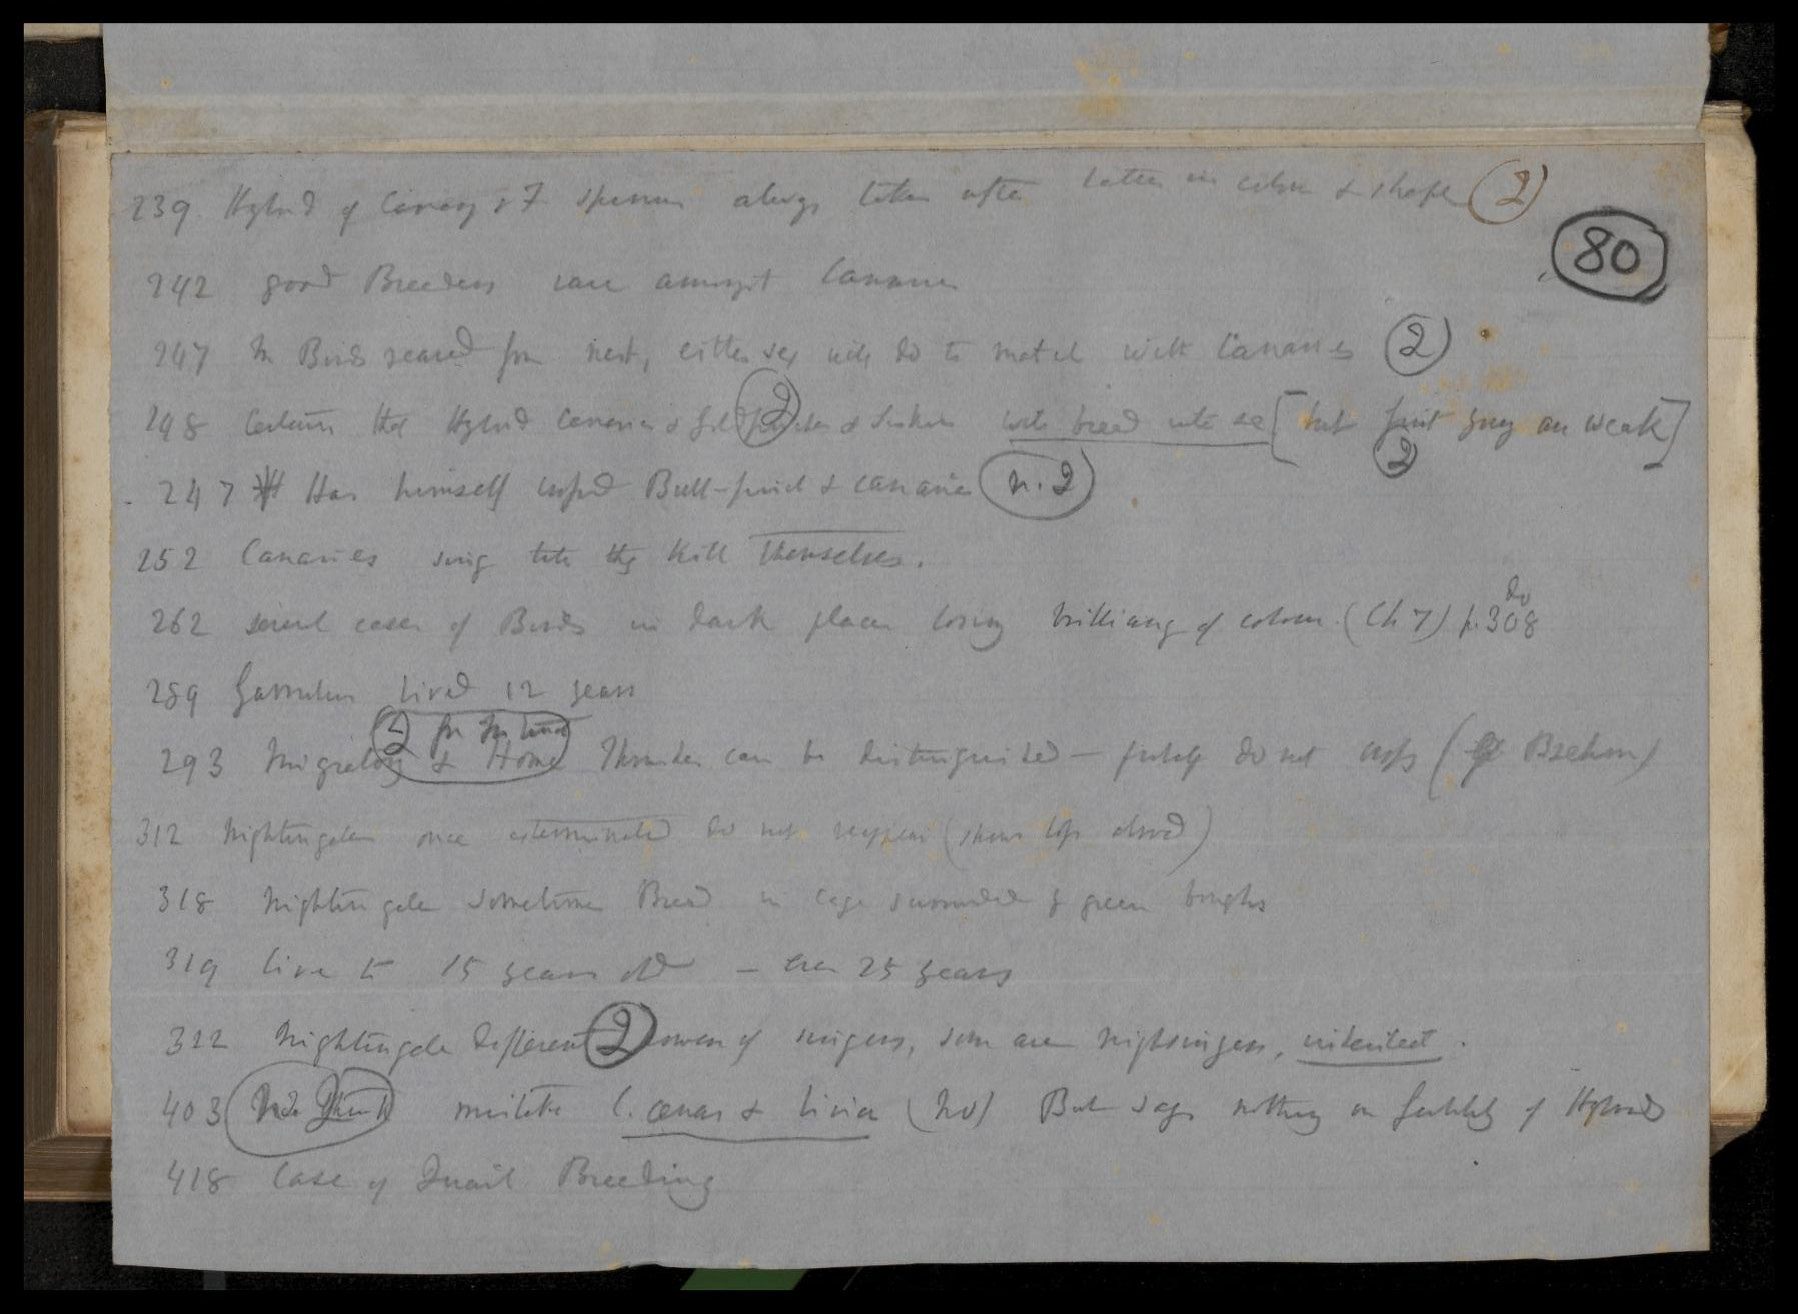 239 Hybrid of Canary & F species always takes after latter in colour & shape (2)
(80)
242 good Breeders rare amongst Canaries
247 In Birds reared from nest, either sex will do to match with Canaries (2)
248 Certain that Hybrid Canaries & (2) & will breed inter se [but first are weak]
(2)
247 Has himself crossed Bull-finch & canaries (n. 2)
252 Canaries sing till they kill themselves.
262 several cases of Birds in dark places losing brilliancy of colour. (Ch 7) do p. 308
289 Garrulus lived 12 years
(2)
293 Migratory & Home Thrushes can be distinguished — probably do not cross (Brehm)
312 Nightingales once exterminated do not reappear (shows loss)
318 Nightingales sometimes Breed in cage surrounded by green boughs
319 live to 15 years old — even 25 years
322 Nightingale different (2) powers of singers, some are nightsingers, inherited.
403 C. œnas & livia (no) But says nothing on fertility of Hybrids
418 Case of Quail Breeding